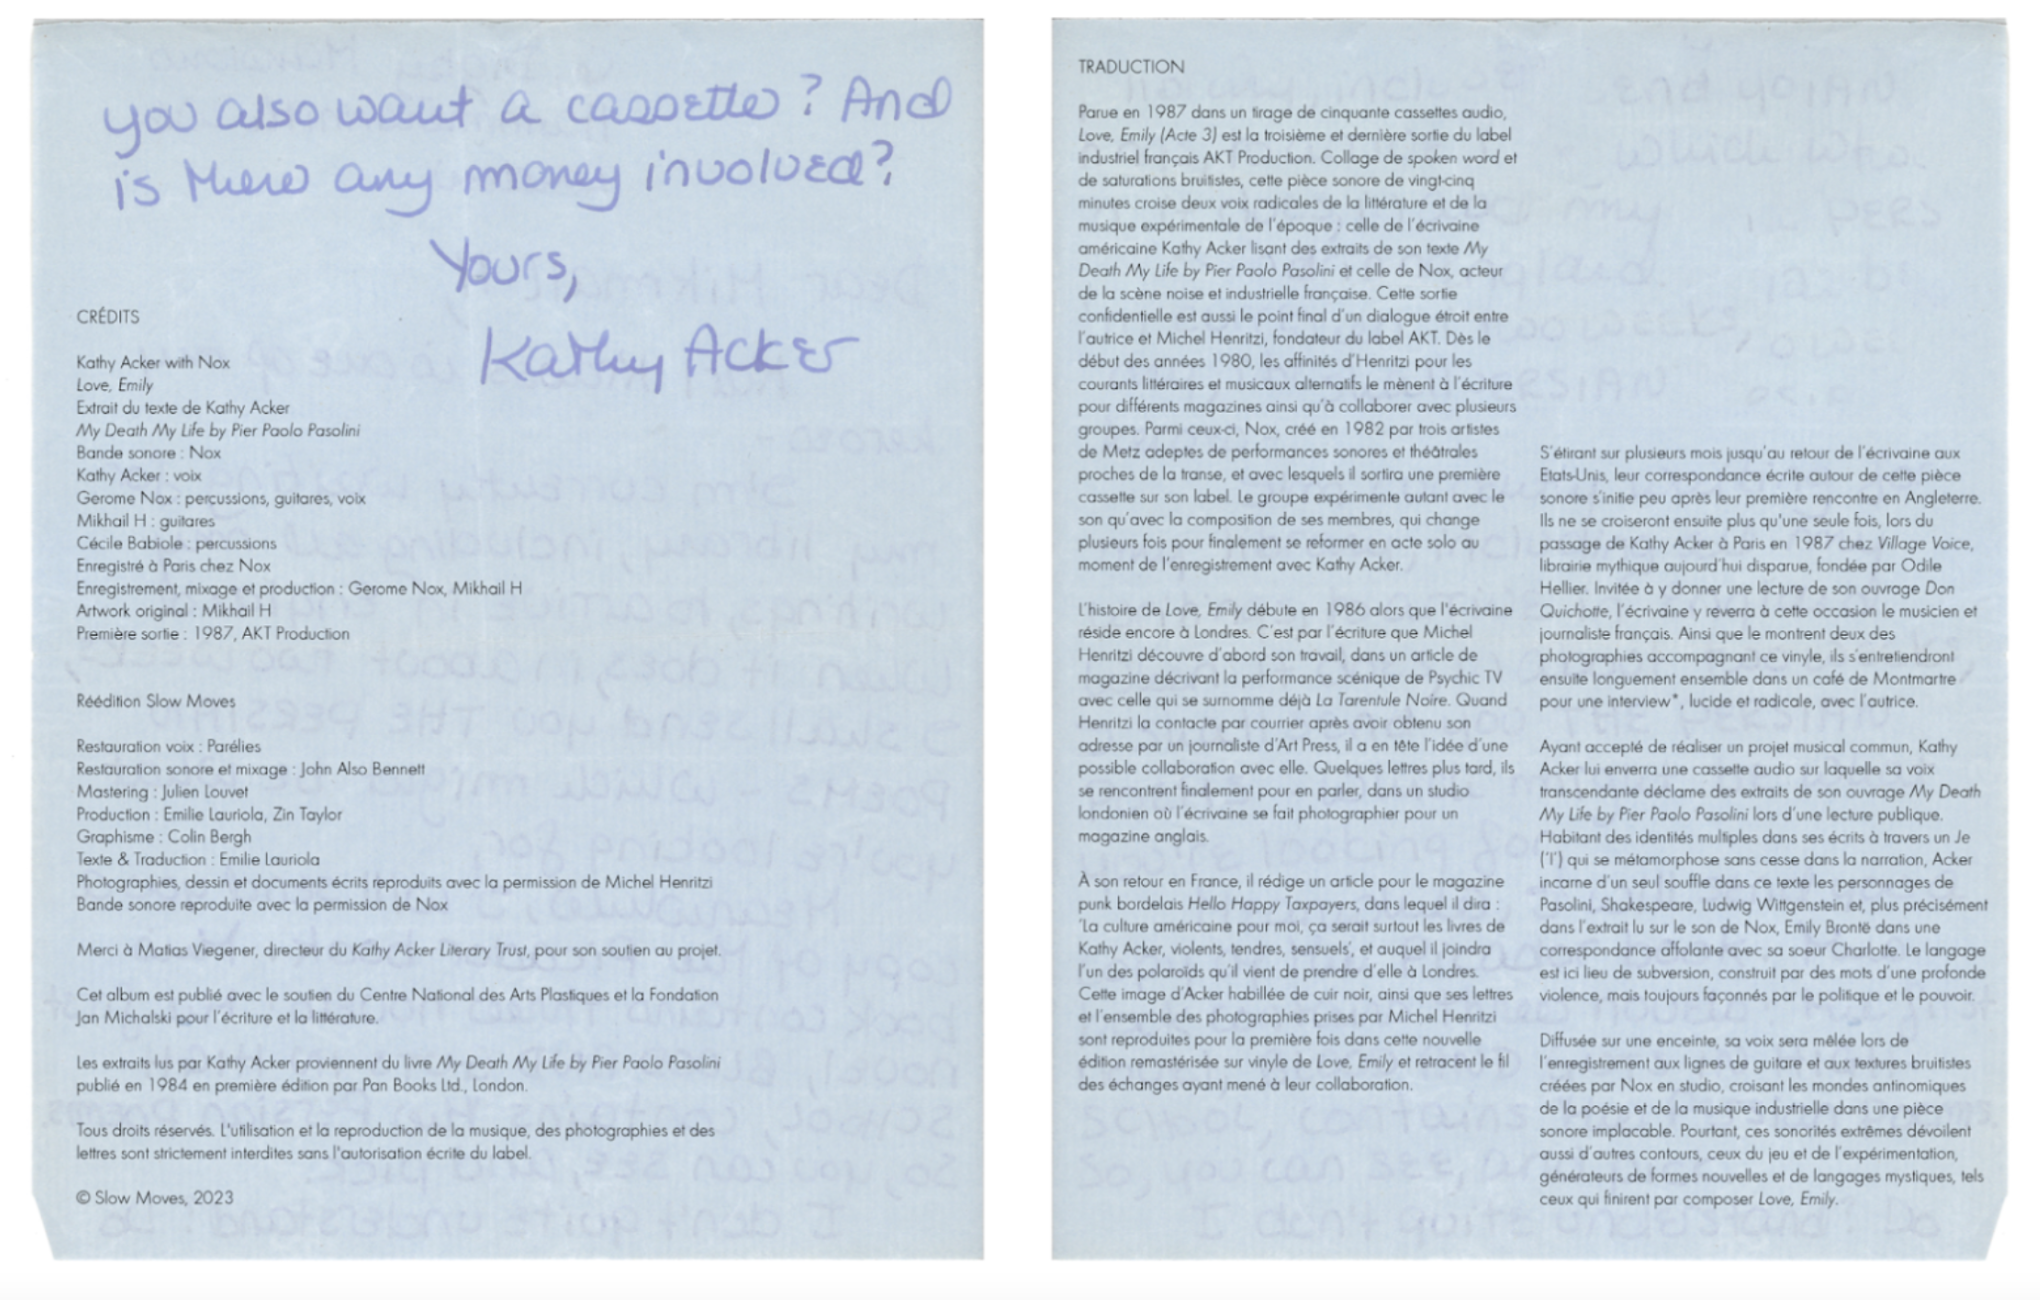 you also want a cassette? And
is there any money involved?
Yours,
Kathy Acker
CRÉDITS
Kathy Acker with Nox
Love, Emily
Extrait du texte de Kathy Acker
My Death My Life by Pier Paolo Pasolini
Bande sonore : Nox
Kathy Acker : voix
Gerome Nox : percussions, guitares, voix
Mikhail H : guitares
Cécile Babiole : percussions
Enregistré à Paris chez Nox
Enregistrement, mixage et production : Gerome Nox, Mikhail H
Artwork original : Mikhail H
Première sortie : 1987, AKT Production
Réédition Slow Moves
Restauration voix : Parélies
Restauration sonore et mixage : John Also Bennett
Mastering : Julien Louvet
Production : Emilie Lauriola, Zin Taylor
Graphisme : Colin Bergh
Texte & Traduction : Emilie Lauriola
Photographies, dessin et documents écrits reproduits avec la permission de Michel Henritzi
Bande sonore reproduite avec la permission de Nox
Merci à Matias Viegener, directeur du Kathy Acker Literary Trust, pour son soutien au projet.
Cet album est publié avec le soutien du Centre National des Arts Plastiques et la Fondation
Jan Michalski pour l'écriture et la littérature.
Les extraits lus par Kathy Acker proviennent du livre My Death My Life by Pier Paolo Pasolini
publié en 1984 en première édition par Pan Books Ltd., London.
Tous droits réservés. L'utilisation et la reproduction de la musique, des photographies et des
lettres sont strictement interdites sans l'autorisation écrite du label.
© Slow Moves, 2023
TRADUCTION
Parue en 1987 dans un tirage de cinquante cassettes audio,
Love, Emily (Acte 3) est la troisième et dernière sortie du label
industriel français AKT Production. Collage de spoken word et
de saturations bruitistes, cette pièce sonore de vingt-cinq
minutes croise deux voix radicales de la littérature et de la
musique expérimentale de l'époque : celle de l'écrivaine
américaine Kathy Acker lisant des extraits de son texte My
Death My Life by Pier Paolo Pasolini et celle de Nox, acteur
de la scène noise et industrielle française. Cette sortie
confidentielle est aussi le point final d'un dialogue étroit entre
l'autrice et Michel Henritzi, fondateur du label AKT. Dès le
début des années 1980, les affinités d'Henritzi pour les
courants littéraires et musicaux alternatifs le mènent à l'écriture
pour différents magazines ainsi qu'à collaborer avec plusieurs
groupes. Parmi ceux-ci, Nox, créé en 1982 par trois artistes
de Metz adeptes de performances sonores et théâtrales
proches de la transe, et avec lesquels il sortira une première
cassette sur son label. Le groupe expérimente autant avec le
son qu'avec la composition de ses membres, qui change
plusieurs fois pour finalement se reformer en acte solo au
moment de l'enregistrement avec Kathy Acker.
L'histoire de Love, Emily débute en 1986 alors que l'écrivaine
réside encore à Londres. C'est par l'écriture que Michel
Henritzi découvre d'abord son travail, dans un article de
magazine décrivant la performance scénique de Psychic TV
avec celle qui se surnomme déjà La Tarentule Noire. Quand
Henritzi la contacte par courrier après avoir obtenu son
adresse par un journaliste d'Art Press, il a en tête l'idée d'une
possible collaboration avec elle. Quelques lettres plus tard, ils
se rencontrent finalement pour en parler, dans un studio
londonien où l'écrivaine se fait photographier pour un
magazine anglais.
À son retour en France, il rédige un article pour le magazine
punk bordelais Hello Happy Taxpayers, dans lequel il dira :
'La culture américaine pour moi, ça serait surtout les livres de
Kathy Acker, violents, tendres, sensuels', et auquel il joindra
l'un des polaroïds qu'il vient de prendre d'elle à Londres.
Cette image d'Acker habillée de cuir noir, ainsi que ses lettres
et l'ensemble des photographies prises par Michel Henritzi
sont reproduites pour la première fois dans cette nouvelle
édition remastérisée sur vinyle de Love, Emily et retracent le fil
des échanges ayant mené à leur collaboration.
S'étirant sur plusieurs mois jusqu'au retour de l'écrivaine aux
Etats-Unis, leur correspondance écrite autour de cette pièce
sonore s'initie peu après leur première rencontre en Angleterre.
Ils ne se croiseront ensuite plus qu'une seule fois, lors du
passage de Kathy Acker à Paris en 1987 chez Village Voice,
librairie mythique aujourd'hui disparue, fondée par Odile
Hellier. Invitée à y donner une lecture de son ouvrage Don
Quichotte, l'écrivaine y reverra à cette occasion le musicien et
journaliste français. Ainsi que le montrent deux des
photographies accompagnant ce vinyle, ils s'entretiendront
ensuite longuement ensemble dans un café de Montmartre
pour une interview*, lucide et radicale, avec l'autrice.
Ayant accepté de réaliser un projet musical commun, Kathy
Acker lui enverra une cassette audio sur laquelle sa voix
transcendante déclame des extraits de son ouvrage My Death
My Life by Pier Paolo Pasolini lors d'une lecture publique.
Habitant des identités multiples dans ses écrits à travers un Je
('I') qui se métamorphose sans cesse dans la narration, Acker
incarne d'un seul souffle dans ce texte les personnages de
Pasolini, Shakespeare, Ludwig Wittgenstein et, plus précisément
dans l'extrait lu sur le son de Nox, Emily Brontë dans une
correspondance affolante avec sa soeur Charlotte. Le langage
est ici lieu de subversion, construit par des mots d'une profonde
violence, mais toujours façonnés par le politique et le pouvoir.
Diffusée sur une enceinte, sa voix sera mêlée lors de
l'enregistrement aux lignes de guitare et aux textures bruitistes
créées par Nox en studio, croisant les mondes antinomiques
de la poésie et de la musique industrielle dans une pièce
sonore implacable. Pourtant, ces sonorités extrêmes dévoilent
aussi d'autres contours, ceux du jeu et de l'expérimentation,
générateurs de formes nouvelles et de langages mystiques, tels
ceux qui finirent par composer Love, Emily.